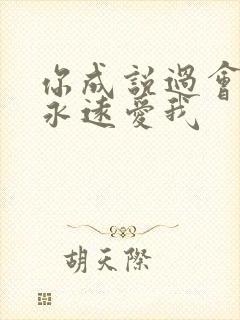 你成說過會
永遠愛我
胡天際